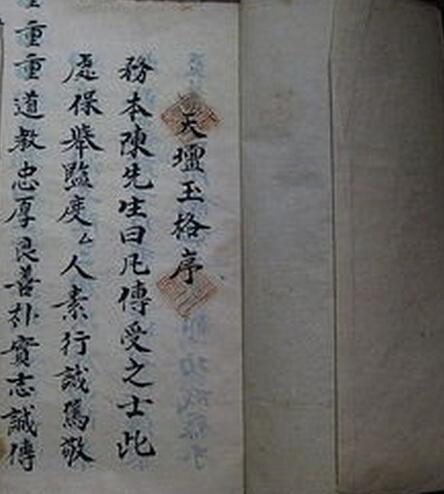 天壇玉格序
務本陳先生曰凡傳受之士此
處保舉監度厶人素行誠篤敬
重重道教忠厚良善朴實志誠傳